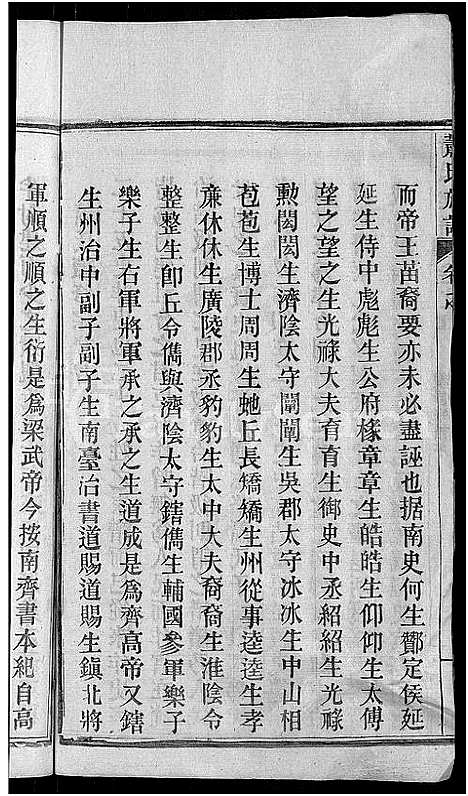 蕭氏族譜 卷之
而帝王苗裔要亦未必盡誣也据南史何生酇定侯延
延生侍中彪彪生公府椽章章生皓皓生仰仰生太傅
望之望之生光祿大夫育育生御史中丞紹紹生光祿
勲閎閎生濟陰太守闡闡生吳郡太守冰冰生中山相
苞苞生博士周周生虵丘長矯矯生州從事逵逵生孝
廉休休生廣陵郡丞豹豹生太中大夫裔裔生淮陰令
整整生卽丘令儁與濟陰太守鎋儁生輔國參軍樂子
樂子生右軍將軍承之承之生道成是爲齊高帝又鎋
生州治中副子副子生南臺治書道賜道賜生鎭北將
軍順之順之生衍是爲梁武帝今按南齊書本紀自高